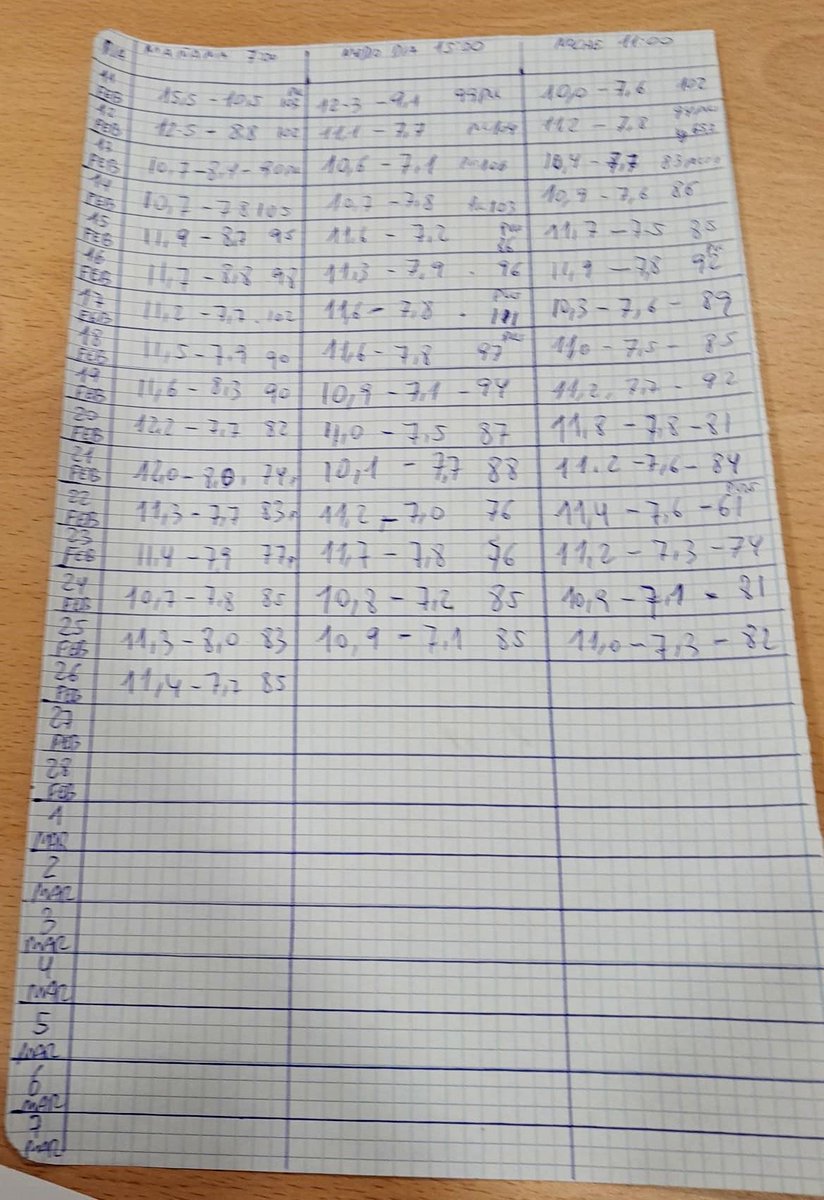 DIA MAÑANA 7:00 MEDIO DIA 15:00 NOCHE 11:00
11 FEB 15,5 - 10,5 103 12-3 - 9,1 99 10,0 - 7,6 102
12 FEB 12-5 - 8,8 102 11,1 - 7,7 11,2 - 7,8
13 FEB 10,7 - 8,1 - 90 10,6 - 7,1 10,4 - 7,7 83
14 FEB 10,7 - 7,8 105 10,7 - 7,8 103 10,9 - 7,6 86
15 FEB 11,9 - 8,7 95 11,6 - 7,2 86 11,7 - 7,5 85
16 FEB 11,7 - 8,8 98 11,3 - 7,9 - 96 11,9 - 7,8 92
17 FEB 11,2 - 7,7 - 102 11,6 - 7,8 - 111 10,3 - 7,6 - 89
18 FEB 11,5 - 7,9 90 11,6 - 7,8 97 11,0 - 7,5 - 85
19 FEB 11,6 - 8,3 90 10,9 - 7,1 - 94 11,2 - 7,7 - 92
20 FEB 12,2 - 7,7 82 11,0 - 7,5 87 11,8 - 7,8 - 81
21 FEB 12,0 - 8,0 - 74 10,1 - 7,7 88 11,2 - 7,6 - 84
22 FEB 11,3 - 7,7 83 11,2 - 7,0 76 11,4 - 7,6 - 61
23 FEB 11,4 - 7,9 77 11,7 - 7,8 11,2 - 7,3 - 74
24 FEB 10,7 - 7,8 85 10,8 - 7,2 85 10,9 - 7,1 - 81
25 FEB 11,3 - 8,0 83 10,9 - 7,1 85 11,0 - 7,3 - 82
26 FEB 11,4 - 7,2 85
27 FEB
28 FEB
1 MAR
2 MAR
3 MAR
4 MAR
5 MAR
6 MAR
7 MAR